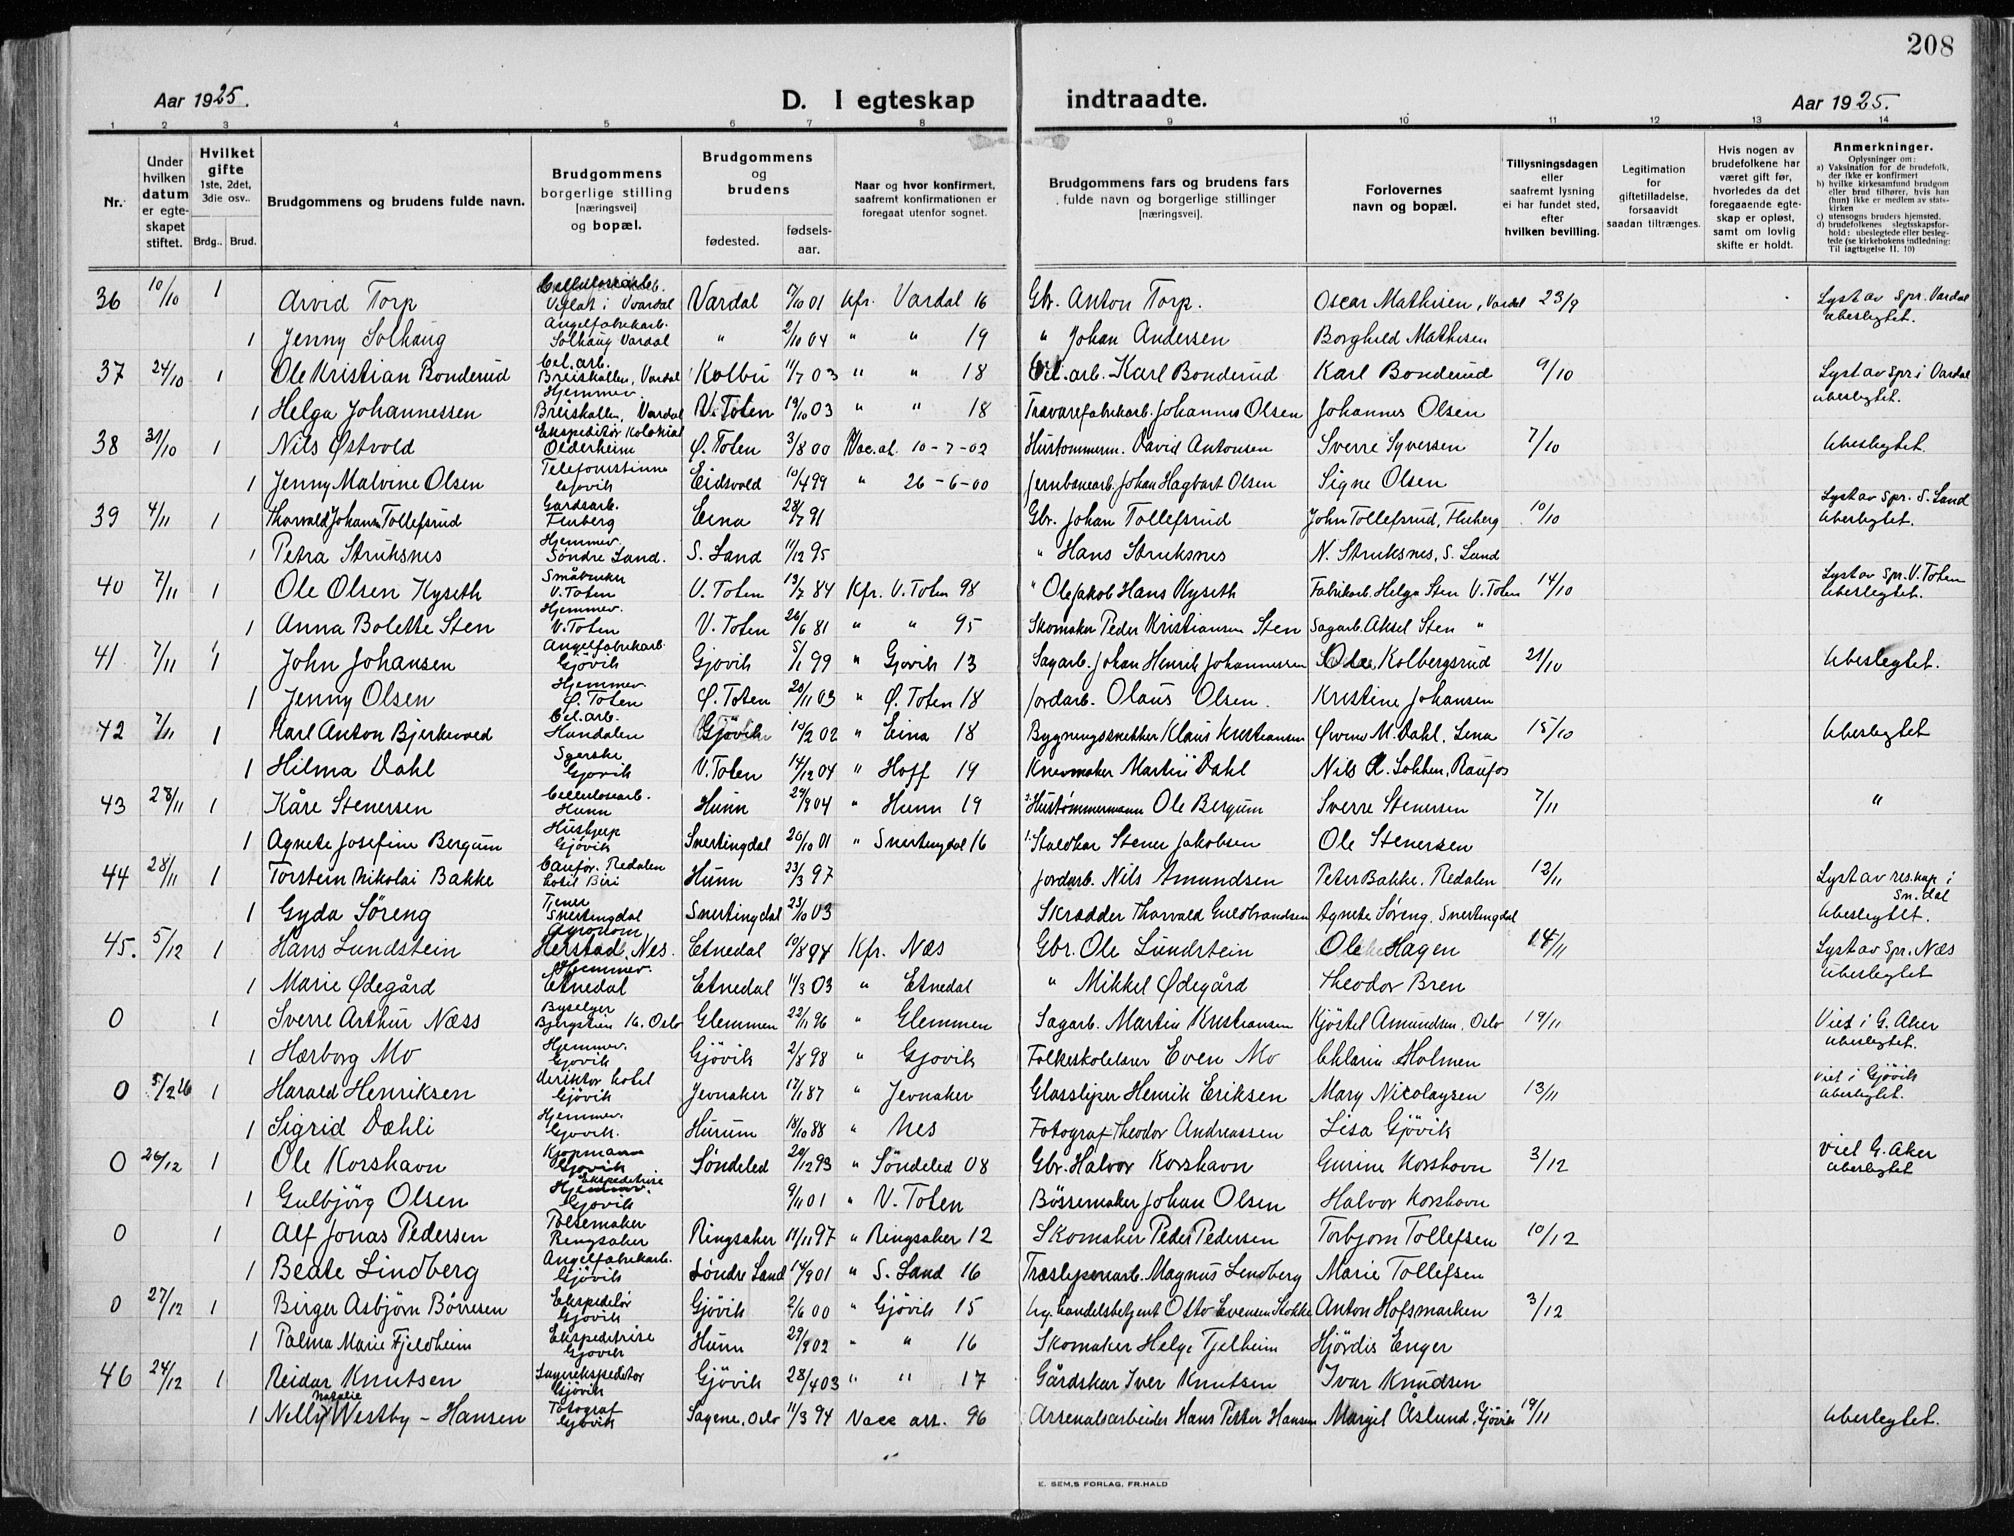 208
Aar 1925.
D. I egteskap indtraadte.
Aar 1925.
1 2 3 4 5 6 7 8 9 10 11 12 13 14
Nr.
Under hvilken datum er egteskapet stiftet.
Hvilket gifte 1ste, 2det, 3die osv..
Brdg.. Brud.
Brudgommens og brudens fulde navn.
Brudgommens borgerlige stilling [næringsvei] og bopæl.
Brudgommens og brudens
fødested.
fødsels-aar.
Naar og hvor konfirmert, saafremt konfirmationen er foregaat utenfor sognet.
Brudgommens fars og brudens fars fulde navn og borgerlige stillinger [næringsvei].
Forlovernes navn og bopæl.
Tillysningsdagen eller saafremt lysning ei har fundet sted, efter hvilken bevilling.
Legitimation for giftetilladelse, forsaavidt saadan tiltrænges.
Hvis nogen av brudefolkene har været gift før, hvorledes da det foregaaende egteskap er opløst, samt om lovlig skifte er holdt.
Anmerkninger.
Oplysninger om:
a) Vaksination for de brudefolk, der ikke er konfirmert
b) hvilke kirkesamfund brudgom eller brud tilhører, hvis han (hun) ikke er medlem av statskirken
c) utensogns bruders hjemsted.
d) brudefolkenes slegtskapsforhold: ubeslegtede eller beslegtede (se kirkebokens indledning: Til iagttagelse II. 10)
36 10/10 1 Arvid Torp Vardal Kfr. Vardal 16 Gbr. Anton Torp. Oscar Mathisen, Vardal 23/9 Lyst av Spr. Vardal Ubeslegtet.
1 Jenny Solhaug Angelfabrikarb. Solhaug Vardal " 2/10 04 " " 19 " Johan Andersen Borghild Mathisen
37 24/10 1 Ole Kristian Bonderud Cel. arb. Breiskallen, Vardal Kolbu 11/7 03 " " 18 Cel. arb. Karl Bonderud Karl Bonderud 9/10 Lyst av Spr i Vardal Ubeslegtet.
1 Helga Johannessen Hjemmev. Breiskallen, Vardal V. Toten 19/10 03 " " 18 Trævarefabrikarb. Johannes Olsen Johannes Olsen
38 31/10 1 Nils Østvold Ekspeditør Kolonial Olderheim Ø. Toten 3/8 00 Vac. at. 10-7-02 Hustømmerm. David Antonsen Sverre Syversen 7/10 Ubeslegtet.
1 Jenny Malvine Olsen Telefonistinne Gjøvik Eidsvold 10/4 99 " 26-6-00 Jernbanearb. Johan Hagbart Olsen Signe Olsen
39 4/11 1 Thorvald Johan Tollefsrud Gardsarb. Fluberg Eina 28/7 91 Gbr. Johan Tollefsrud John Tollefsrud, Fluberg 10/10 Lyst av Spr. S. Land Ubeslegtet.
1 Petra Struksnes Hjemmev. Søndre Land. S. Land 11/12 95 " Hans Struksnes N. Struksnes, S. Land
40 7/11 1 Ole Olsen Kyseth Småbruker V. Toten V. Toten 13/7 84 Kfr. V. Toten 98 " Ole Jakob Hans Kyseth Fabrikarb. Helge Sten V. Toten 14/10 Lyst av Spr. V. Toten Ubeslegtet.
1 Anna Bolette Sten Hjemmev. V. Toten V. Toten 26/6 81 " " 95 Skomaker Peder Kristiansen Sten Sagarb. Aksel Sten "
41. 7/11 1 John Johansen Angelfabrikarb. Gjövik Gjovik 5/1 99 " Gjovik 13 Sagarb. Johan Henrik Johannessen Kolbergsrud 21/10 Ubeslegtet.
1 Jenny Olsen Hjemmev Ø. Toten Ø. Toten 20/11 03 " Ø. Toten 18 Jordarb. Olaus Olsen. Kristine Johansen
42 7/11 1 Karl Anton Bjerkevold Cel. arb. Hundalen Gjövik 10/2 02 " Eina 18 Bygningssnekker Klaus Kristiansen M. Dahl, Lena 15/10 Ubeslegtet
1 Hilma Dahl Syerske Gjovik V. Toten 14/12 04 " Hoff 19 Martin Dahl Nils Lokken, Raufos
43 28/11 1 Kåre Stenersen Cellulosearb. Hunn Hunn 29/9 04 " Hunn 19 2. Hustømmermann Ole Bergum Sverre Stenersen 7/11 "
1 Agnete Josefine Bergum Hushjelp Gjövik Snertingdal 26/10 01 " Snertingdal 16 1. Staldkar Stener Jakobsen Ole Stenersen
44 28/11 1 Torstein Nikolai Bakke Redalen hotel Biri Hunn 23/3 97 Jordarb. Nils Amundsen Peter Bakke. Redalen 12/11 Lyst av res. kap i Sn. dal Ubeslegtet.
1 Gyda Søreng Tjener Snertingdal Snertingdal 23/10 03 Skrædder Thorvald Guldbrandsen Agnete Søreng, Snertingdal
45. 5/12 1 Hans Lundstein Agronom Herstad, Nes. Etnedal 10/8 94 Kfr. Næs Gbr. Ole Lundstein Ole Hagen 14/11 Lyst av Spr. Næs Ubeslegtet
1 Marie Ødegård Hjemmev. Etnedal Etnedal 11/3 03 " Etnedal " Mikkel Ødegård Theodor Bren
0 1 Sverre Arthur Næss Byselger Bjergstien 16. Oslo Glemmen 22/11 96 " Glemmen Sagarb. Martin Kristiansen Kjöstel Amundsen, Oslo 19/11 Viet i G. Aker Ubeslegtet.
1 Hærborg Mo Hjemmev. Gjovik Gjövik 2/8 98 " Gjovik Folkeskolelærer Even Mo Holmen
0 5/2 26 1 Harald Henriksen direktør hotel Gjövik Jevnaker 17/1 87 " Jevnaker Glassliper Henrik Eriksen Mary Nicolaysen 13/11 Viet i Gjövik Ubeslegtet.
1 Sigrid Dæhli Hjemmev. Gjovik. Hurum 18/10 88 " Nes Fotograf Theodor Andreassen Lisa Gjövik
0 26/12 1 Ole Korshavn Kjøpmann Gjøvik Søndeled 20/12 93 " Søndeled 08 Gbr. Halvor Korshavn Gurine Korshavn 3/12 Viet G. Aker Ubeslegtet
1 Gulbjörg Olsen Ekspeditrise Gjovik 9/11 01 " V. Toten Bössemaker Johan Olsen Halvor Korshavn
0 1 Alf Jonas Pedersen Pølsemaker Ringsaker Ringsaker 11/11 97 " Ringsaker 12 Skomaker Peder Pedersen Torbjorn Tollefsen 10/12
1 Beate Lindberg Angelfabrikarb. Gjövik Søndre Land 14/9 01 " S. Land 16 Træsliperiarb. Magnus Lindberg Marie Tollefsen
0 27/12 1 Birger Asbjörn Börresen Ekspeditör Gjövik Gjövik 2/6 00 " Gjövik 15 handelsbetjent Otto Evensen Stokke Anton Hofsmarken 3/12
1 Palma Marie Fjeldheim Ekspeditrise Gjovik Hunn 29/9 02 " " 16 Skomaker Helge Fjelheim Hjördis Enger
46 24/12 1 Reidar Knutsen Gjövik Gjövik 28/4 03 " " 17 Gårdskar Iver Knutsen Ivar Knudsen
1 Nelly Natalie Westby - Hansen Fotograf Gjövik Sagene, Oslo 11/3 94 Vacc att. 96 Arsenalsarbeider Hans Petter Hansen Margit Åslund, Gjövik 19/11 Ubeslegtet.
E. SEM,S FORLAG, FR.HALD